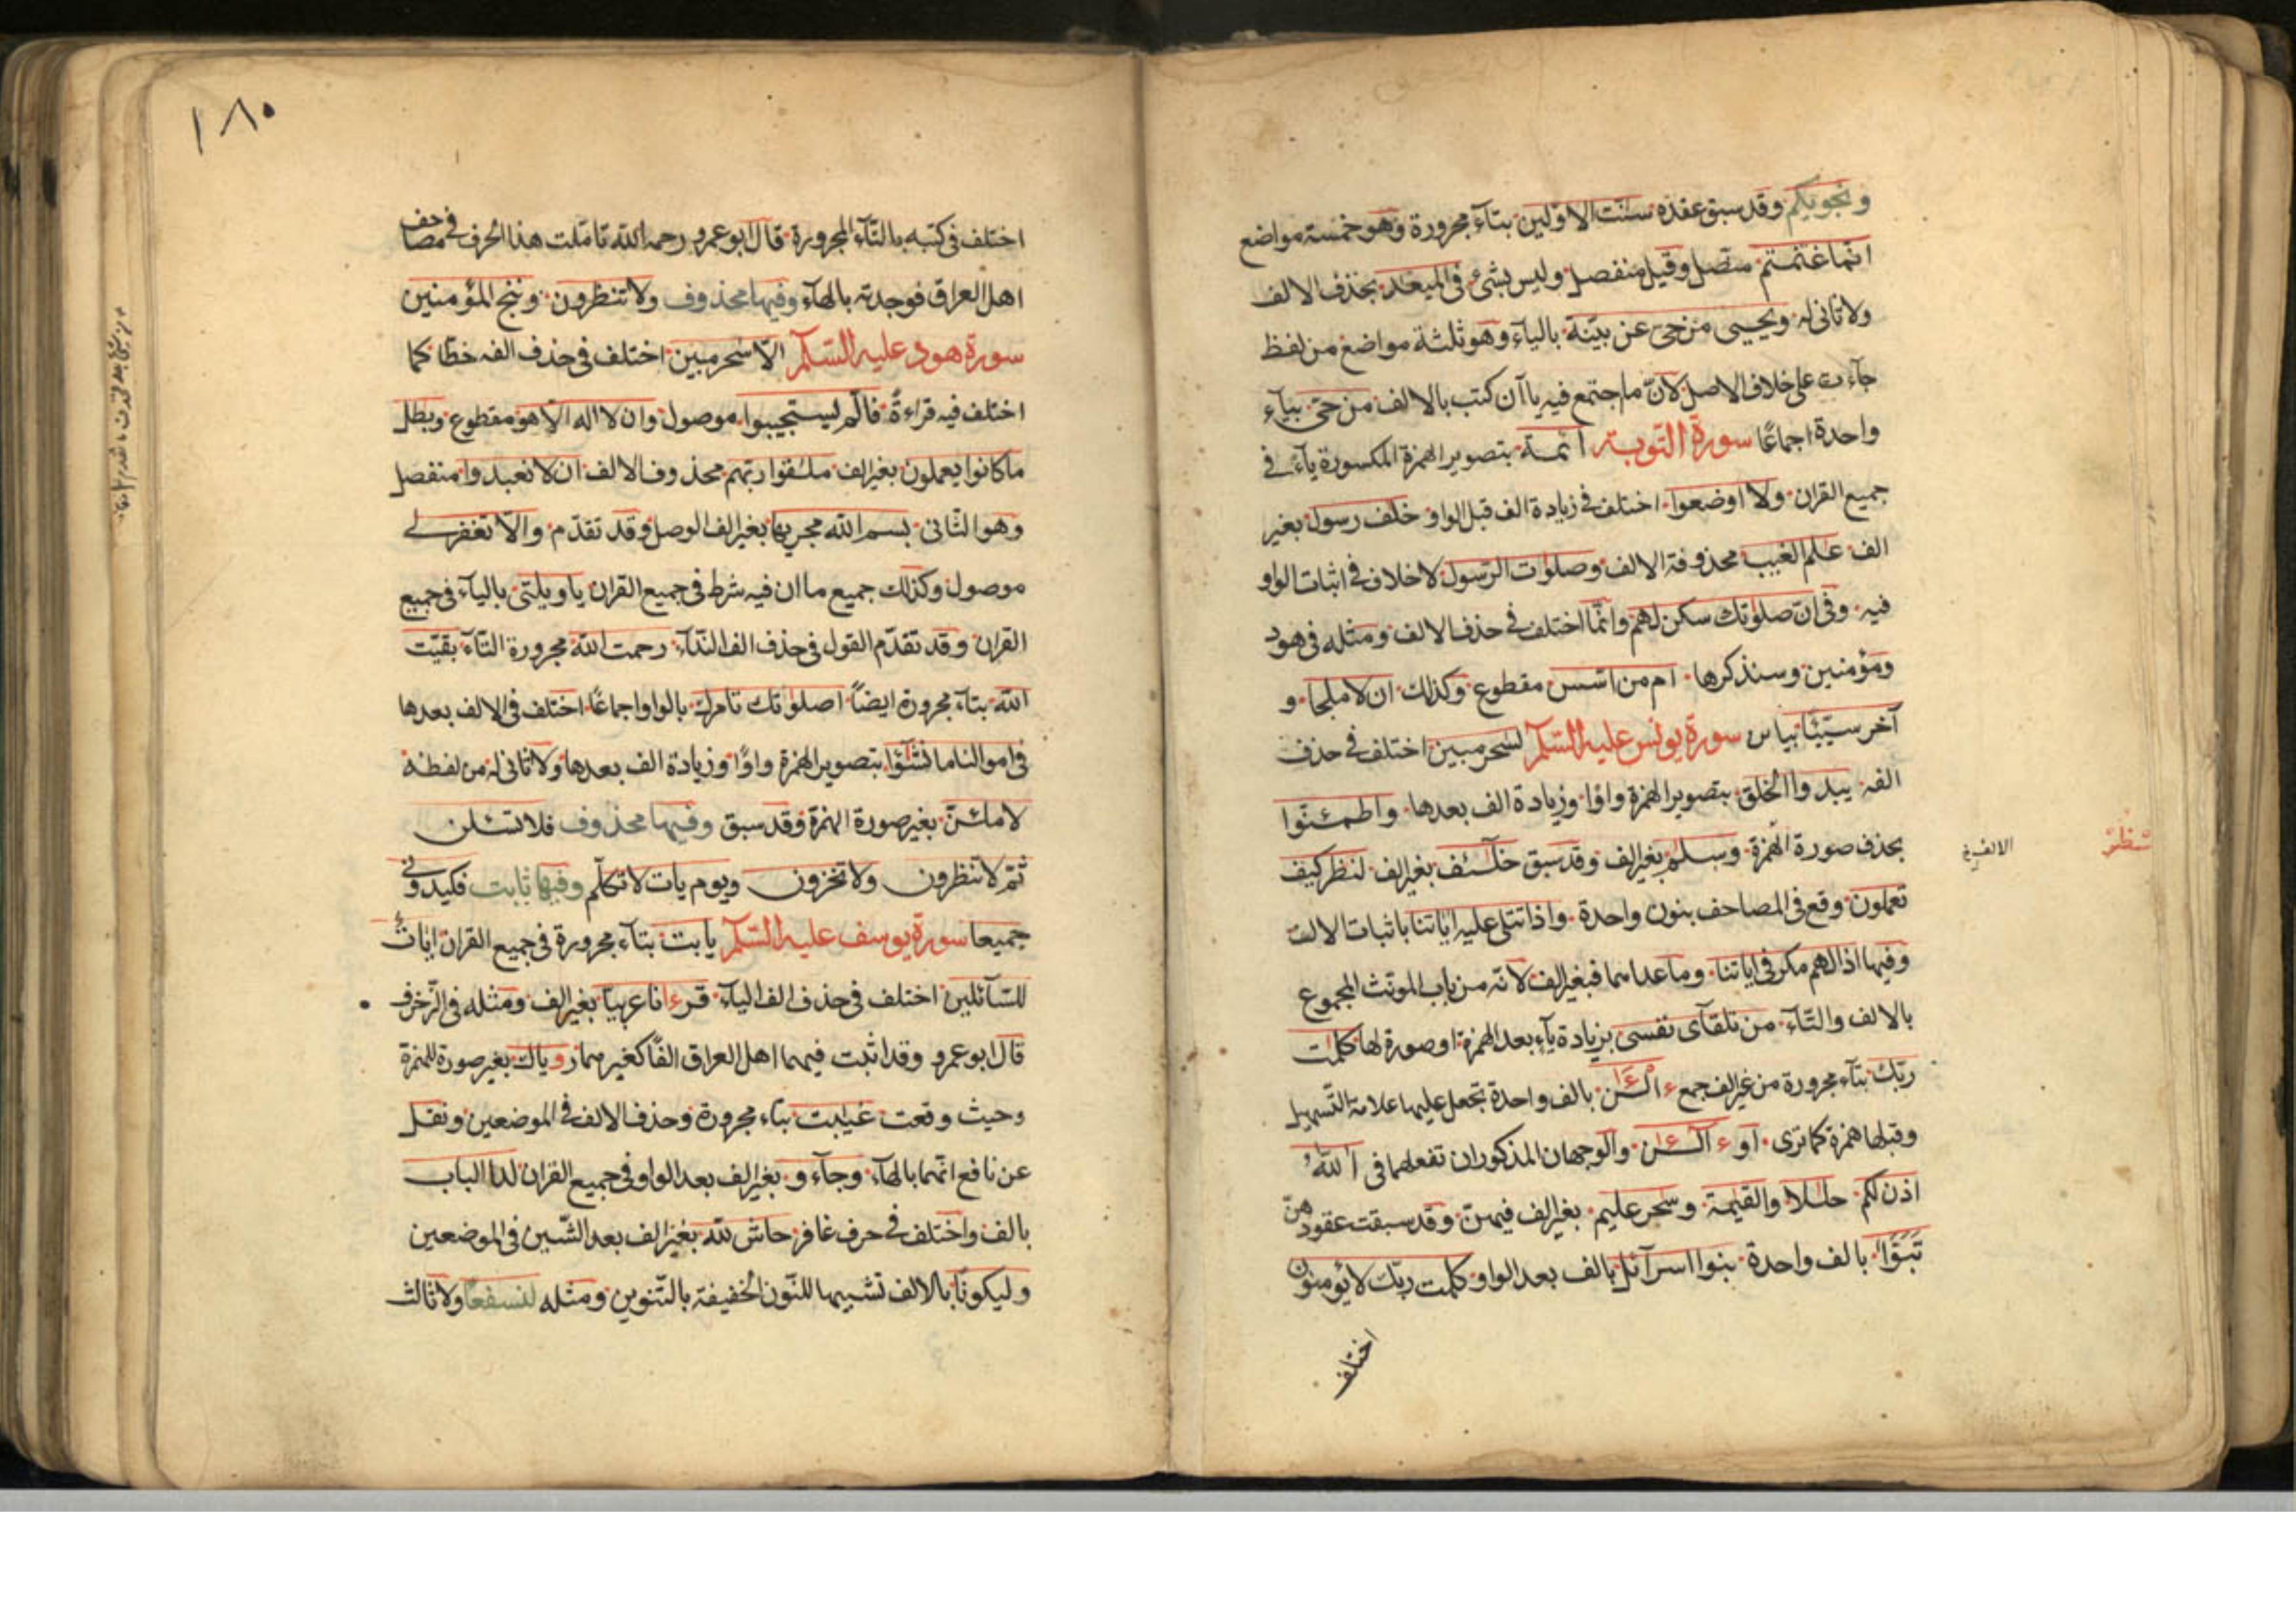 ونجويكم وقد سبق عقده سنت الاوّلين بتآء مجرورة وهو خمسة مواضع
انّما غنمتم متّصل وقيل منفصل وليس بشئ فى الميعد بحذف الالف
ولا ثانى له ويحيى من حىّ عن بيّنة بالياء وهو ثلثة مواضع من لفظ
جآءت على خلاف الاصل لانّ ما اجتمع فيه ياآن كتب بالالف من حىّ بيآء
واحدة اجماعًا سورة التوبة ائمة بتصوير الهمزة المكسورة يآء فى
جميع القران ولا اوضعوا اختلف فى زيادة الف قبل الواو خلف رسول بغير
الف علم الغيب محذوفة الالف وصلوات الرّسول لا خلاف فى اثبات الواو
فيه وفى انّ صلوتك سكن لهم وانّما اختلف فى حذف الالف ومثله فى هود
ومؤمنين وسنذكرها ام من اسّس مقطوع وكذلك ان لا ملجا و
آخر سيّئا بياس سورة يونس عليه السّلم لسحر مبين اختلف فى حذف
الفه يبدوا الخلق بتصوير الهمزة واوًا وزيادة الف بعدها واطمئنّوا
بحذف صورة الهمزة وسلم بغير الف وقد سبق خلئف بغير الف لنظر كيف
تعملون وقع فى المصاحف بنون واحدة واذا تتلى عليهم اياتنا باثبات الالف
وفيها اذا لهم مكر فى اياتنا وما عداهما فبغير الف لانّه من باب المونث المجموع
بالالف والتّآء من تلقآى نفسى بزيادة يآء بعد الهمزة او صورة لها كلمت
ربّك بتآء مجرورة من غير الف جمع ءالئن بالف واحدة تجعل عليها علامة التّسهيل
وقبلها همزة كما ترى او ءالئن والوجهان المذكوران تفعلهما فى ءالله
اذن لكم حللا والقيمة وسحر عليم بغير الف فيهنّ وقد سبقت عقودهنّ
تبوّا بالف واحدة بنوا اسرآئل بالف بعد الواو كلمت ربّك لا يؤمنون
اختلف
اختلف فى كتبه بالتّآء المجرورة قال ابو عمرو رحمه الله تامّلت هذا الحرف فى مصاحف
اهل العراق فوجدته بالهآء وفيها محذوف ولا تنظرون وننج المؤمنين
سورة هود عليه السّلم الّا سحر مبين اختلف فى حذف الفه خطّا كما
اختلف فيه قراءةً فالّم ليستجيبوا موصول وان لا اله الّا هو مقطوع وبطل
ما كانوا يعملون بغير الف ملقوا ربّهم محذوف الالف ان لا تعبدوا منفصل
وهو الثّانى بسم الله مجريها بغير الف الوصل وقد تقدّم والّا تغفر لى
موصول وكذلك جميع ما ان فيه شرط فى جميع القران يا ويلتى بالياء فى جميع
القران وقد تقدّم القول فى حذف الف النّدآء رحمت الله مجرورة التّآء بقيّت
الله بتآء مجرورة ايضاً اصلوتك تامرك بالواو اجماعًا اختلف فى الالف بعدها
فى اموالنا ما نشٰؤا بتصوير الهمزة واوًا وزيادة الف بعدها ولا ثانى له من لفظه
لاملئنّ بغير صورة الهمزة وقد سبق وفيها محذوف فلا تسئلن
ثمّ لا تنظرون ولا تخزون ويوم يات لا تكلّم وفيها ثابت فكيدونى
جميعا سورة يوسف عليه السّلم يابت بتآء مجرورة فى جميع القران ايات
للسّآئلين اختلف فى حذف الف الياء قرءانا عربيّا بغير الف ومثله فى الزّخرف
قال ابو عمرو وقد اثبت فيهما اهل العراق الفًا كغيرهما روياك بغير صورة للهمزة
وحيث وقعت غيبت بتاء مجرورة وحذف الالف فى الموضعين ونقل
عن نافع انّهما بالهآء وجآءو بغير الف بعد الواو فى جميع القران لدا الباب
بالف واختلف فى حرف غافر حاش لله بغير الف بعد الشّين فى الموضعين
وليكونًا بالالف تشبيها للنّون الخفيفة بالتّنوين ومثله لنسفعًا ولا ثالث
١٨٠